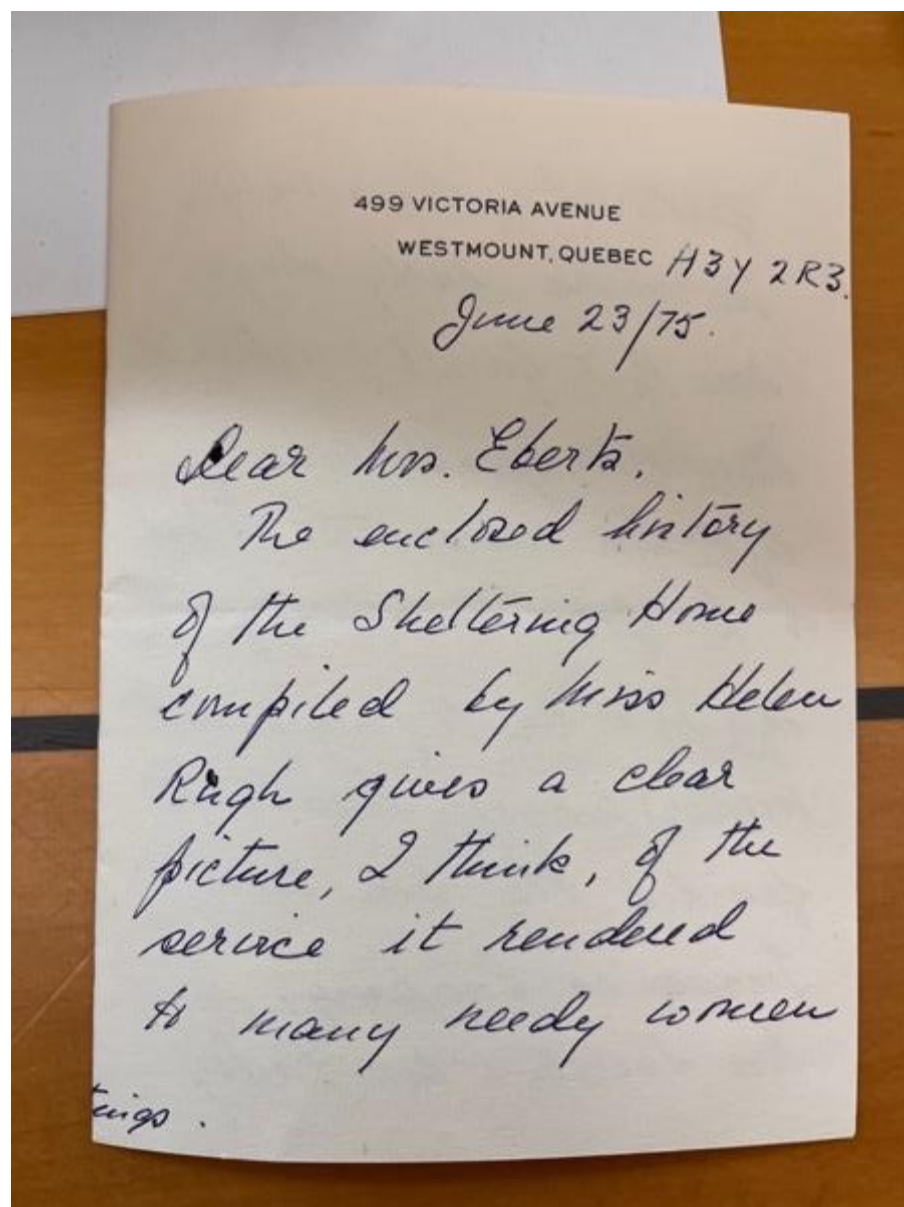 499 VICTORIA AVENUE
WESTMOUNT, QUEBEC H3Y 2R3.
June 23/75.
Dear Mrs. Eberts.
The enclosed history
of the Sheltering Home
compiled by Miss Helen
Rugh gives a clear
picture, I think, of the
service it rendered
to many needy women